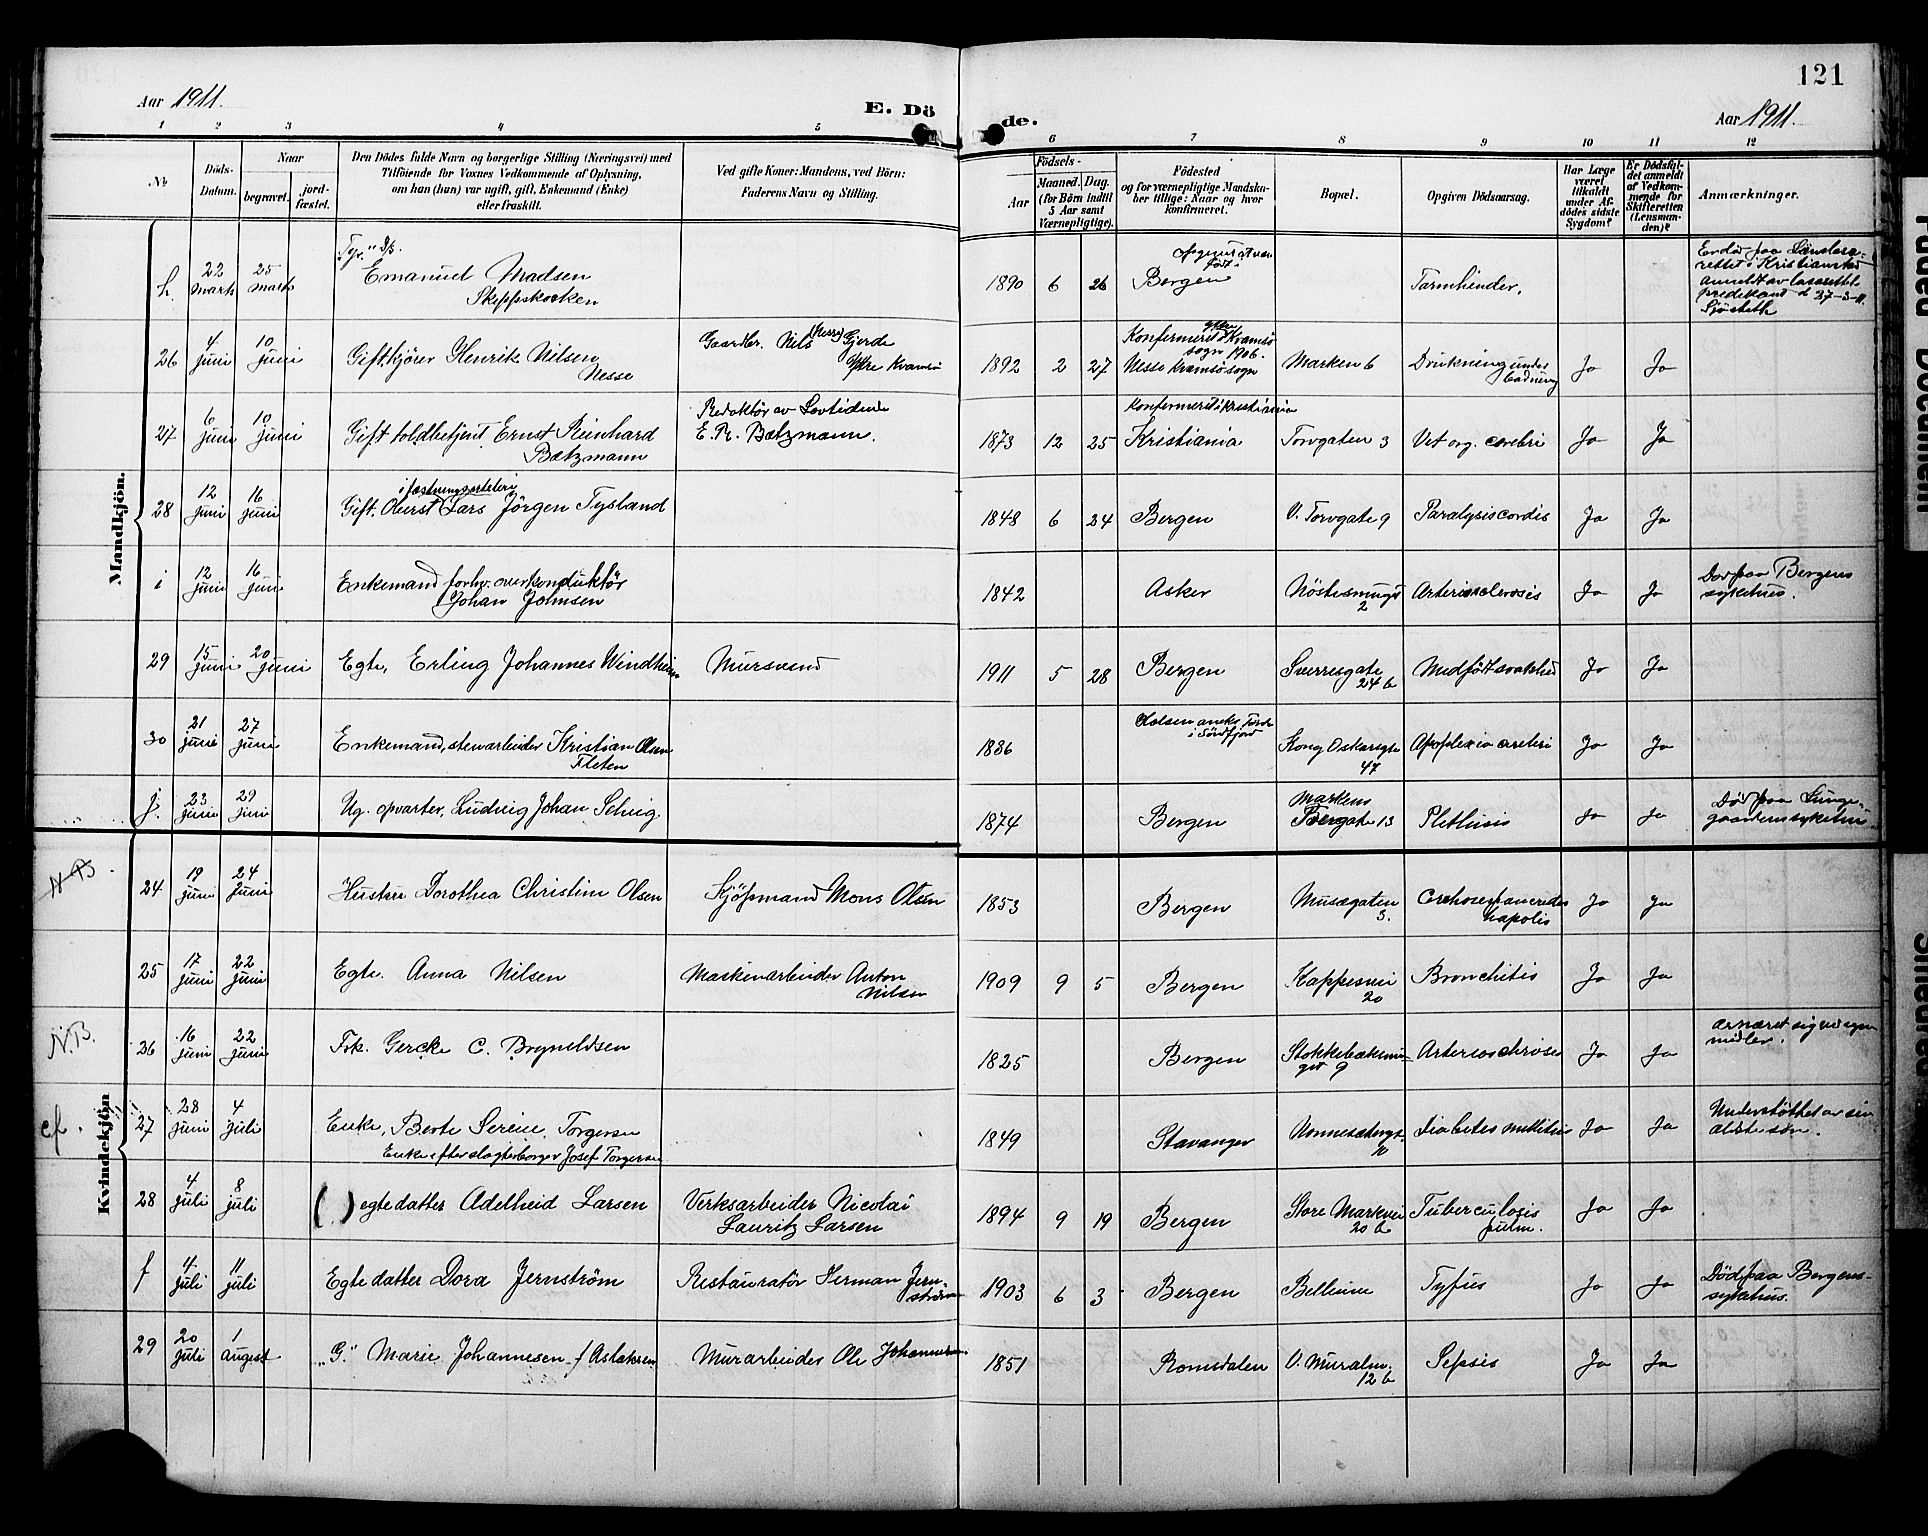 121
Aar 1911.
E. Dö
de.
Aar 1911.
1 2 3 4 5 6 7 8 9 10 11 12
No
Döds-
Datum.
Naar
begravet.
jord-
fæstet.
Den Dödes fulde Navn og borgerlige Stilling (Næringsvei) med
Tilföiende for Voxnes Vedkommende af Oplysning,
om han (hun) var ugift, gift, Enkemand (Enke)
eller fraskilt.
Ved gifte Koner: Mandens, ved Börn:
Faderens Navn og Stilling.
Födsels-
Aar
Maaned.
Dag.
(for Börn indtil
5 Aar samt
Værnepligtige).
Födested
og for værnepligtige Mandska-
ber tillige: Naar og hvor
konfirmeret.
Bopæl.
Opgiven Dödsaarsag.
Har Læge
været
tilkaldt
under Af-
dödes sidste
Sygdom?
Er Dödsfal-
det anmeldt
af Vedkom-
mende for
Skifteretten
(Lensman-
den)?
Anmærkninger.
Mandkjön.
h. 22 marts 25 marts
Emanuel Madsen
Skeppskocken
1890 6 26
född i
Bergen
Tarmhinder.
rettet i Kristianstad
anmeldt av lasarettet
predikant d 27-3-11.
26 4 juni 10 juni Gift kjörer Henrik Nilsen
Nesse
Gaardbr. Nils (Nesse) Gjerde
Ytre Kvamsö
1892 2 27
Konfirmeret i Ytre Kvamsö
sogn 1906.
Nesse Kvamsö sogn
Marken 6 Drukning under
badning Ja Ja
27 6 juni 10 juni Gift toldbetjent Ernst Reinhard
Bætzmann
Redaktör av Lovtidende
E. R. Bætzmann.
1873 12 25
Konfirmeret i Kristiania
Kristiania Torvgaten 3 Vit. org. cerebri Ja Ja
28 12 juni 16 juni
i fæstningsartileri
Gift. Oberst Lars Jörgen Tysland
1848 6 24 Bergen V. Torvgate 9 Paralysis cordis Ja Ja
i 12 juni 16 juni Enkemand forhv. overkonduktör
Johan Johnsen
1842 Asker Nöstesmuget
2 Arteriosclerosis Ja Ja
Död paa Bergens
sykehus.
29 15 juni 20 juni Egte, Erling Johannes Windheim Mursvend
1911 5 28 Bergen Sverresgate
24 b Medfödt svakhed Ja Ja
30 21 juni 27 juni Enkemand, stenarbeider Kristian Olsen
Fleten
1836
Holsen aneks Förde
i Söndfjord
Kong Oskarsgte
47 Apoplexia cerebri Ja Ja
j. 23 juni 29 juni Ug. opvarter, Ludvig Johan Selvig.
1874 Bergen
Markens
13 Pthisis Ja Ja
Död paa Lunge-
gaardens sykehus
Kvindekjön
N.B.
24 19 juni 24 juni Hustru Dorothea Christine Olsen Kjöpmand Mons Olsen
1853 Bergen Musægaten
3. Ja Ja
25 17 juni 22 juni Egte. Anna Nilsen Maskinarbeider Anton
Nilsen
1909 9 5 Bergen Kappesvei
20 Bronchitis Ja Ja
N.B.
26 16 juni 22 juni Frk. Gercke C. Bryneldsen
1825 Bergen Stokkebæksmu-
get 9 Arteriosclerose Ja Ja
ernæret sig ved egne
midler.
cf.
27 28 juni 4 juli Enke, Berte Serine Torgersen
Enke efter slagterborger Josef Torgersen
1849 Stavanger Nonnesætergt.
10 Diabetes mellitus Ja Ja
Understöttet av sin
ældste sön.
28 4 juli 8 juli ( ) egtedatter Adelheid Larsen Verksarbeider Nicolai
Lauritz Larsen
1894 9 19 Bergen Store Markvei
20 b Tuberculosis
pulm. Ja Ja
f 4 juli 11 juli Egtedatter Dora Jernström Restauratör Herman Jern-
ström
1903 6 3 Bergen Bellevue Tyfus Ja Ja
Död paa Bergens-
sykehus.
29 20 juli 1 august "G." Marie Johannesen f. Aslaksen Murarbeider Ole Johannesen
1851 Romsdalen V. Muralm.
12 b Sepsis Ja Ja